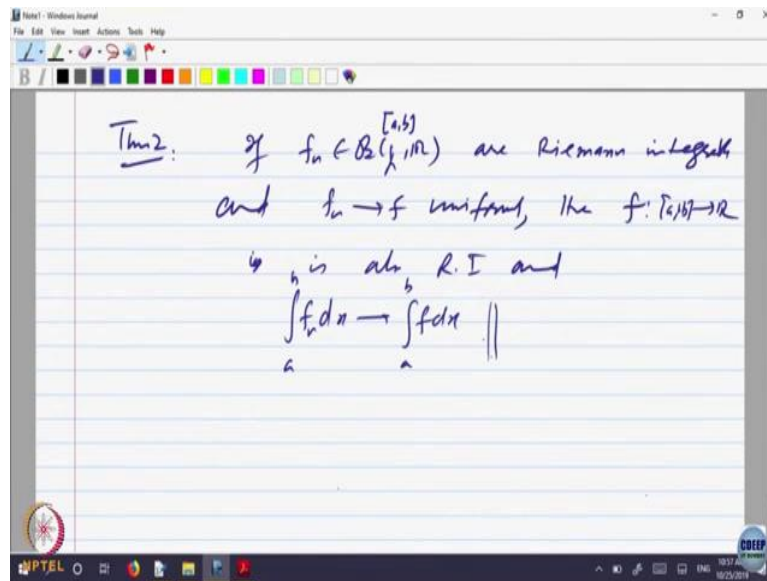 Note1 - Windows Journal
File Edit View Insert Actions Tools Help
B I
[a,b]
Thm2: If fₙ ∈ B(I, ℝ) are Riemann integrable
and fₙ → f uniform, the f: [a,b] → ℝ
is is also R.I and
∫ₐᵇ fₙ dx → ∫ₐᵇ f dx ||
NPTEL
CDEEP
ENG
10/25/2019